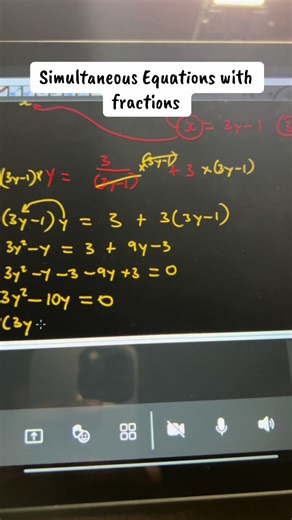 Simultaneous Equations with
fractions
x
x = 3y-1 (3
(3y-1)× y = 3/(3y-1) ×(3y-1) + 3 ×(3y-1)
(3y-1)y = 3 + 3(3y-1)
3y²-y = 3 + 9y-3
3y²-y-3-9y+3 = 0
3y²-10y = 0
(3y